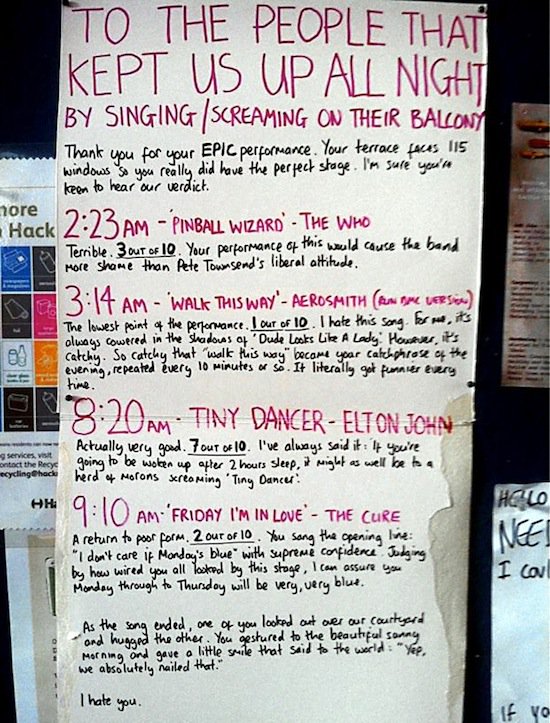 TO THE PEOPLE THAT
KEPT US UP ALL NIGHT
BY SINGING/SCREAMING ON THEIR BALCONY
Thank you for your EPIC performance. Your terrace faces 115
windows so you really did have the perfect stage. I'm sure you're
keen to hear our verdict.
2:23AM - 'PINBALL WIZARD' - THE WHO
Terrible. 3 OUT OF 10. Your performance of this would cause the band
more shame than Pete Townsend's liberal attitude.
3:14 AM - 'WALK THIS WAY' - AEROSMITH (RUN DMC VERSION)
The lowest point of the performance. 1 OUT OF 10. I hate this song. For me, it's
always cowered in the shadows of 'Dude Looks Like A Lady'. However, it's
catchy. So catchy that "walk this way" became your catchphrase of the
evening, repeated every 10 minutes or so. It literally got funnier every
time.
8:20AM - TINY DANCER - ELTON JOHN
Actually very good. 7 OUT OF 10. I've always said it: 'If you're
going to be woken up after 2 hours sleep, it might as well be to a
herd of morons screaming 'Tiny Dancer'.
9:10 AM - 'FRIDAY I'M IN LOVE' - THE CURE
A return to poor form. 2 OUT OF 10. You sang the opening line:
"I don't care if Monday's blue" with supreme confidence. Judging
by how wired you all looked by this stage, I can assure you
Monday through to Thursday will be very, very blue.
As the song ended, one of you looked out over our courtyard
and hugged the other. You gestured to the beautiful sunny
morning and gave a little smile that said to the world: "Yep,
we absolutely nailed that."
I hate you.
more
Hack
g services, visit
ontact the Recyc
ecycling@hack
HELLO
NEE
I
If